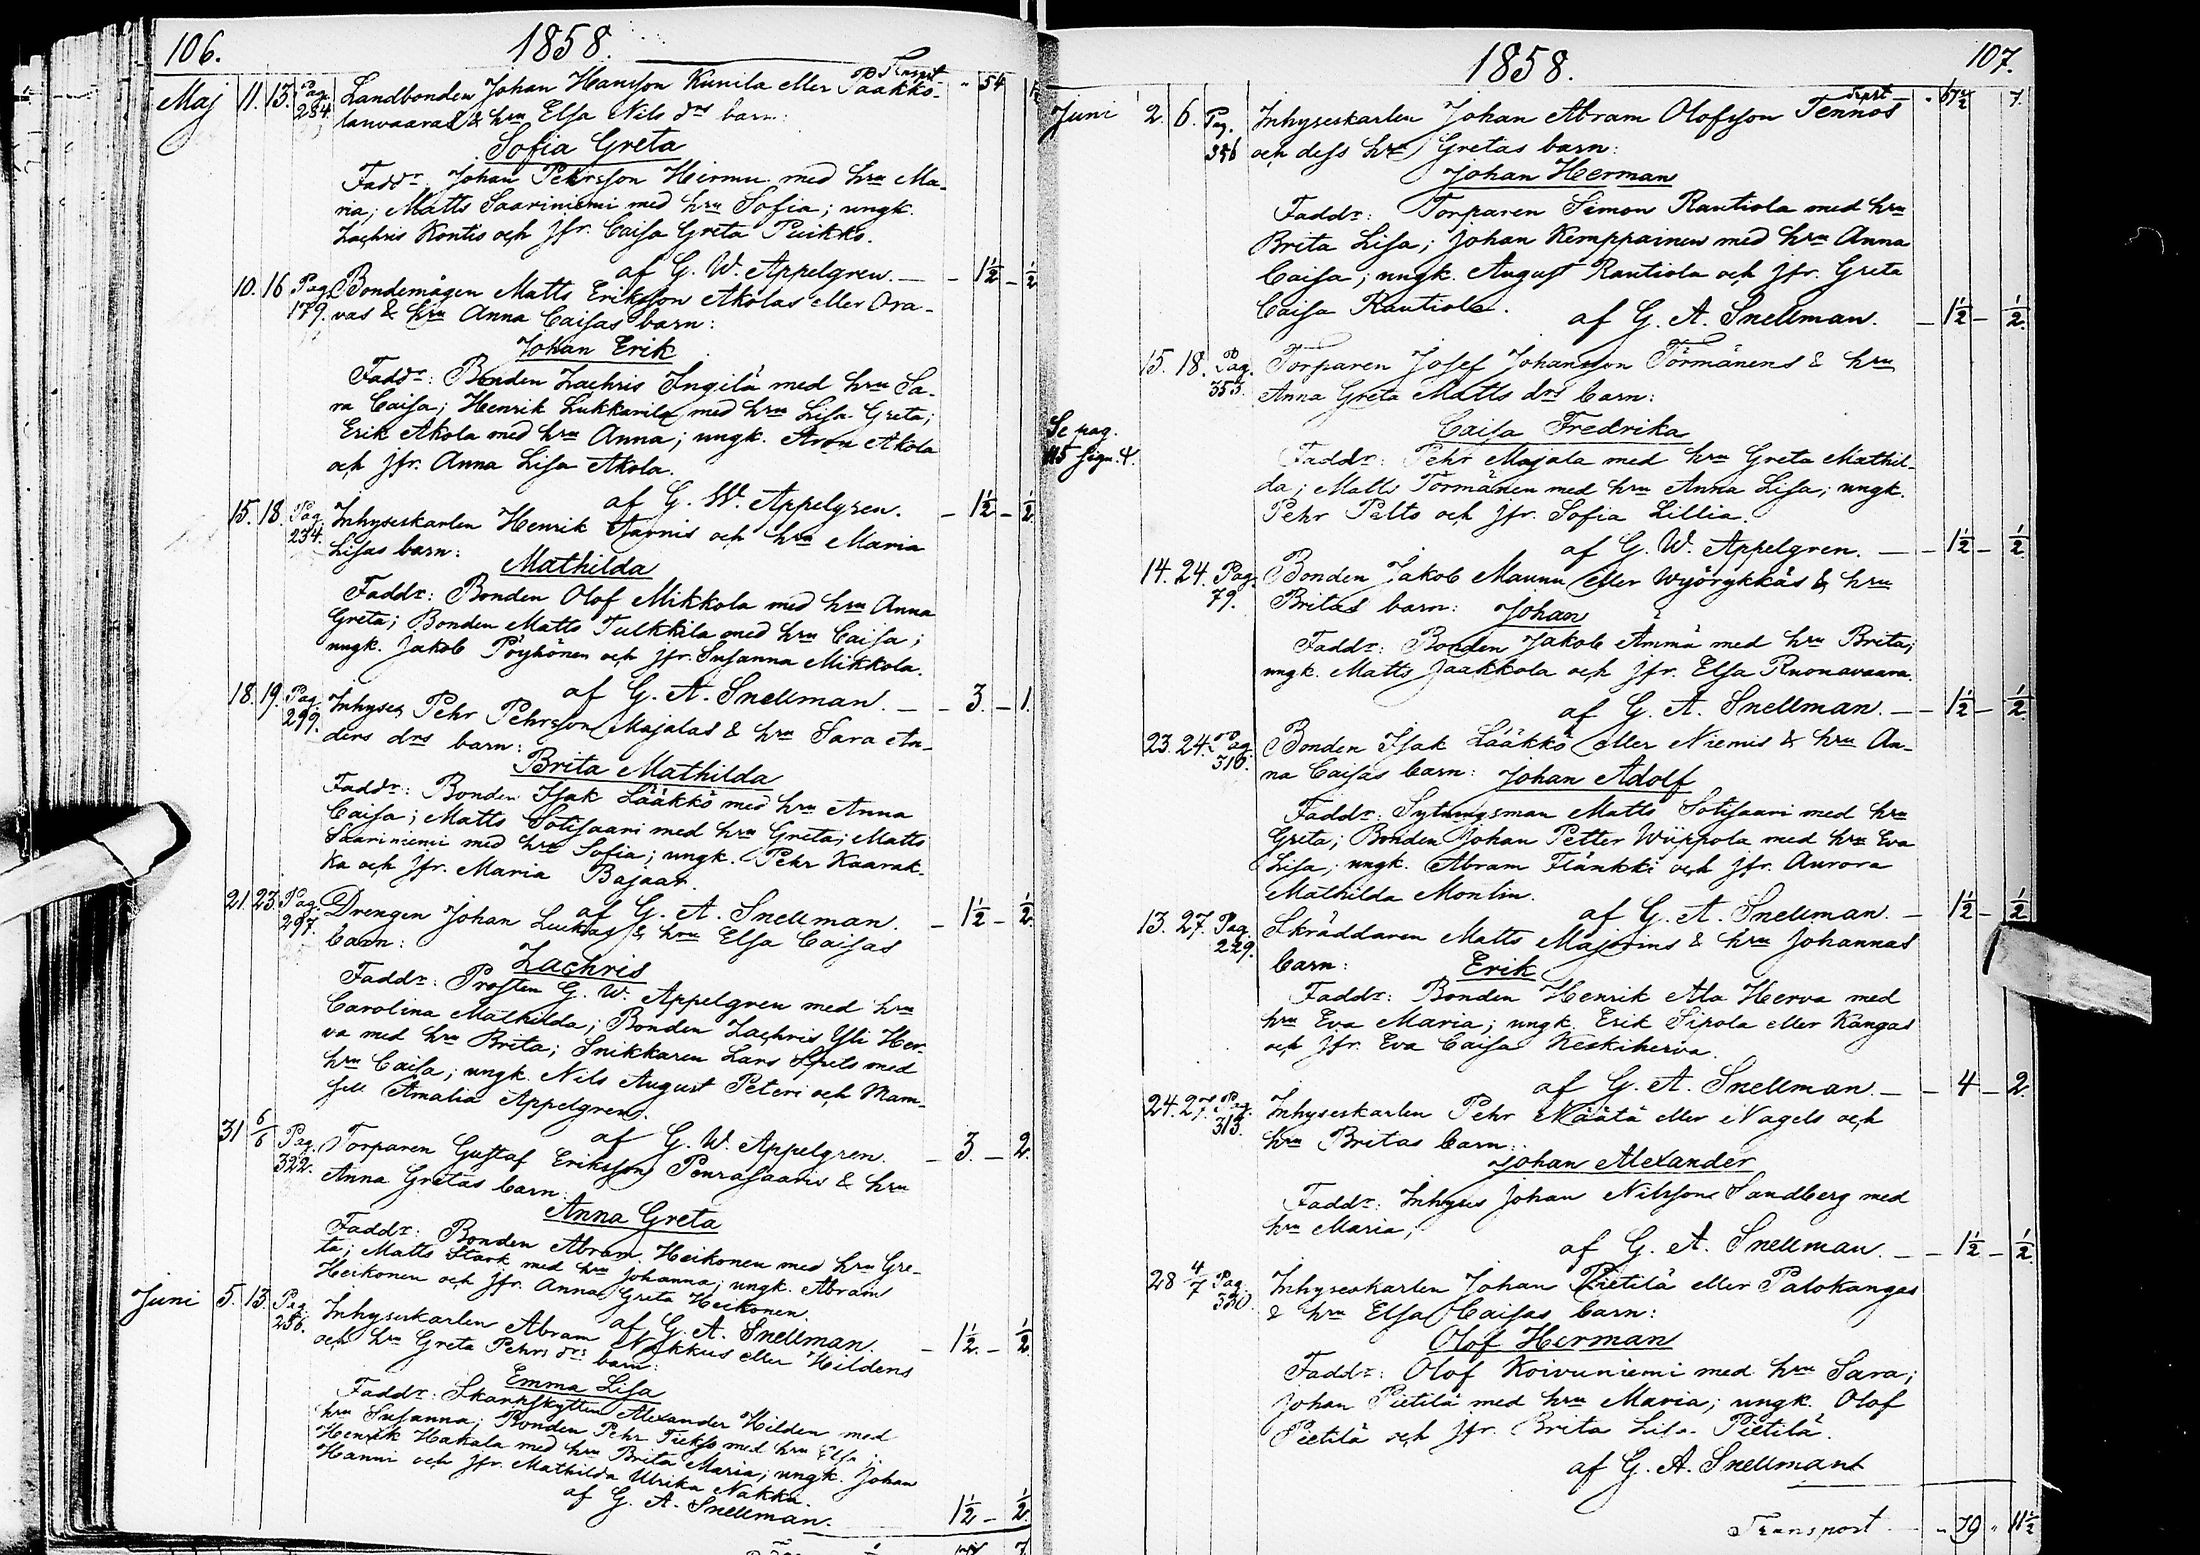 106.
1858.
Transpt
" 54
Maj 11. 13. Pag. 234. Landbonden Johan Hansson Kunila eller Paakko-
lanvaaras & hru Elsa Nils drs barn:
Sofia Greta
Faddr. Johan Pehrsson Hirmu med hru Ma-
ria; Matts Saariniemi med hru Sofia; ungk.
Zachris Kontio och jfr. Caisa Greta Puikko.
af G. W. Appelgren. — - 1½ - ½
10. 16 Pag. 179. Bondemågen Matts Eriksson Akolas eller Ora-
vas & hru Anna Caisas barn:
Johan Erik
Faddr: Bonden Zachris Ingilä med hru Sa-
ra Caisa; Henrik Lukkarila med hru Lisa Greta;
Erik Akola med hru Anna; ungk. Aron Akola
och jfr. Anna Lisa Akola.
af G. W. Appelgren. - 1½ - ½
15. 18. Pag. 234. Inhyseskarlen Henrik Tjarnis och hru Maria
Lisas barn:
Mathilda
Faddr: Bonden Olof Mikkola med hru Anna
Greta; Bonden Matts Tulkkila med hru Caisa;
ungk. Jakob Pöyhönen och jfr. Susanna Mikkola.
af G. A. Snellman. — - 3. - 1.
18. 19. Pag. 299. Inhyses Pehr Pehrsson Majalas & hru Sara An-
ders drs barn:
Brita Mathilda
Faddr: Bonden Isak Lääkkö med hru Anna
Caisa; Matts Sotisaari med hru Greta; Matts
Saariniemi med hru Sofia; ungk. Pehr Kaarak-
ka och jfr. Maria Bajaar.
af G. A. Snellman. - 1½ - ½
21. 23. Pag. 297. Drengen Johan Luckas & hru Elsa Caisas
barn:
Zachris
Faddr: Prosten G. W. Appelgren med hru
Carolina Mathilda; Bonden Zachris Yli Her-
va med hru Brita; Snikkaren Lars Spets med
hru Caisa; ungk. Nils August Peteri och Mam-
sell Amalia Appelgren.
af G. W. Appelgren. - 3. - 2.
31 6/6 Pag. 322. Torparen Gustaf Eriksson Penrasaaris & hru
Anna Gretas barn:
Anna Greta
Faddr: Bonden Abram Heikonen med hru Gre-
ta; Matts Stark med hru Johanna; ungk. Abram
Heikonen och jfr. Anna Greta Heikonen.
af G. A. Snellman. - 1½. - ½
Juni 5. 13. Pag. 256. Inhyseskarlen Abram Nakkus eller Hildens
och hru Greta Pehrs drs barn:
Emma Lisa
Faddr: Skarpskytten Alexander Hilden med
hru Susanna; Bonden Pehr Tiekso med hru Elsa;
Henrik Hakala med hru Brita Maria; ungk. Johan
Hanni och jfr. Mathilda Ulrika Nakka.
af G. A. Snellman. 1½ - ½
107.
1858.
Trspt - 67½ 7.
Juni 2. 6. Pag. 356 Inhyseskarlen Johan Abram Olofsson Tennos
och dess hru Gretas barn:
Johan Herman
Faddr: Torparen Simon Rautiola med hru
Brita Lisa; Johan Kemppainen med hru Anna
Caisa; ungk. August Rautiola och jfr. Greta
Caisa Rautiola.
af G. A. Snellman. - 1½ - ½
15. 18. Pag. 353. Torparen Josef Johansson Törmänens & hru
Anna Greta Matts drs barn:
Caisa Fredrika
Se pag.
115 sign. 4.
Faddr: Pehr Majala med hru Greta Mathil-
da; Matts Törmänen med hru Anna Lisa; ungk.
Pehr Palto och jfr. Sofia Lillia.
af G. W. Appelgren. — - 1½ - ½
14. 24. Pag. 79. Bonden Jakob Maunu eller Wyörykkäs & hru
Britas barn: Johan
Faddr: Bonden Jakob Ämmä med hru Brita;
ungk. Matts Jaakkola och jfr. Elsa Ruonavaara.
af G. A. Snellman. — - 1½ - ½
23. 24. Pag. 316. Bonden Isak Lääkkö eller Niemis & hru An-
na Caisas barn: Johan Adolf
Faddr: Sytningsman Matts Sotisaari med hru
Greta; Bonden Johan Petter Wiippola med hru Eva
Lisa; ungk. Abram Flänkki och jfr. Aurora
Mathilda Monlin.
af G. A. Snellman. — 1½ - ½
13. 27. Pag. 229. Skräddaren Matts Majorins & hru Johannas
barn: Erik
Faddr: Bonden Henrik Ala Herva med
hru Eva Maria; ungk. Erik Sipola eller Kangas
och jfr. Eva Caisa Keskiherva.
af G. A. Snellman. — - 4 - 2.
24. 27. Pag. 313. Inhyseskarlen Pehr Näätä eller Nagels och
hru Britas barn:
Johan Alexander
Faddr: Inhyses Johan Nilsson Sandberg med
hru Maria;
af G. A. Snellman. — - 1½ - ½
28 4/7 Pag. 330. Inhyseskarlen Johan Pietilä eller Palokangas
& hru Elsa Caisas barn:
Olof Herman
Faddr: Olof Koivuniemi med hru Sara;
Johan Pietilä med hru Maria; ungk. Olof
Pietilä och jfr. Brita Lisa Pietilä.
af G. A. Snellman
Transport - " 79 " 11½